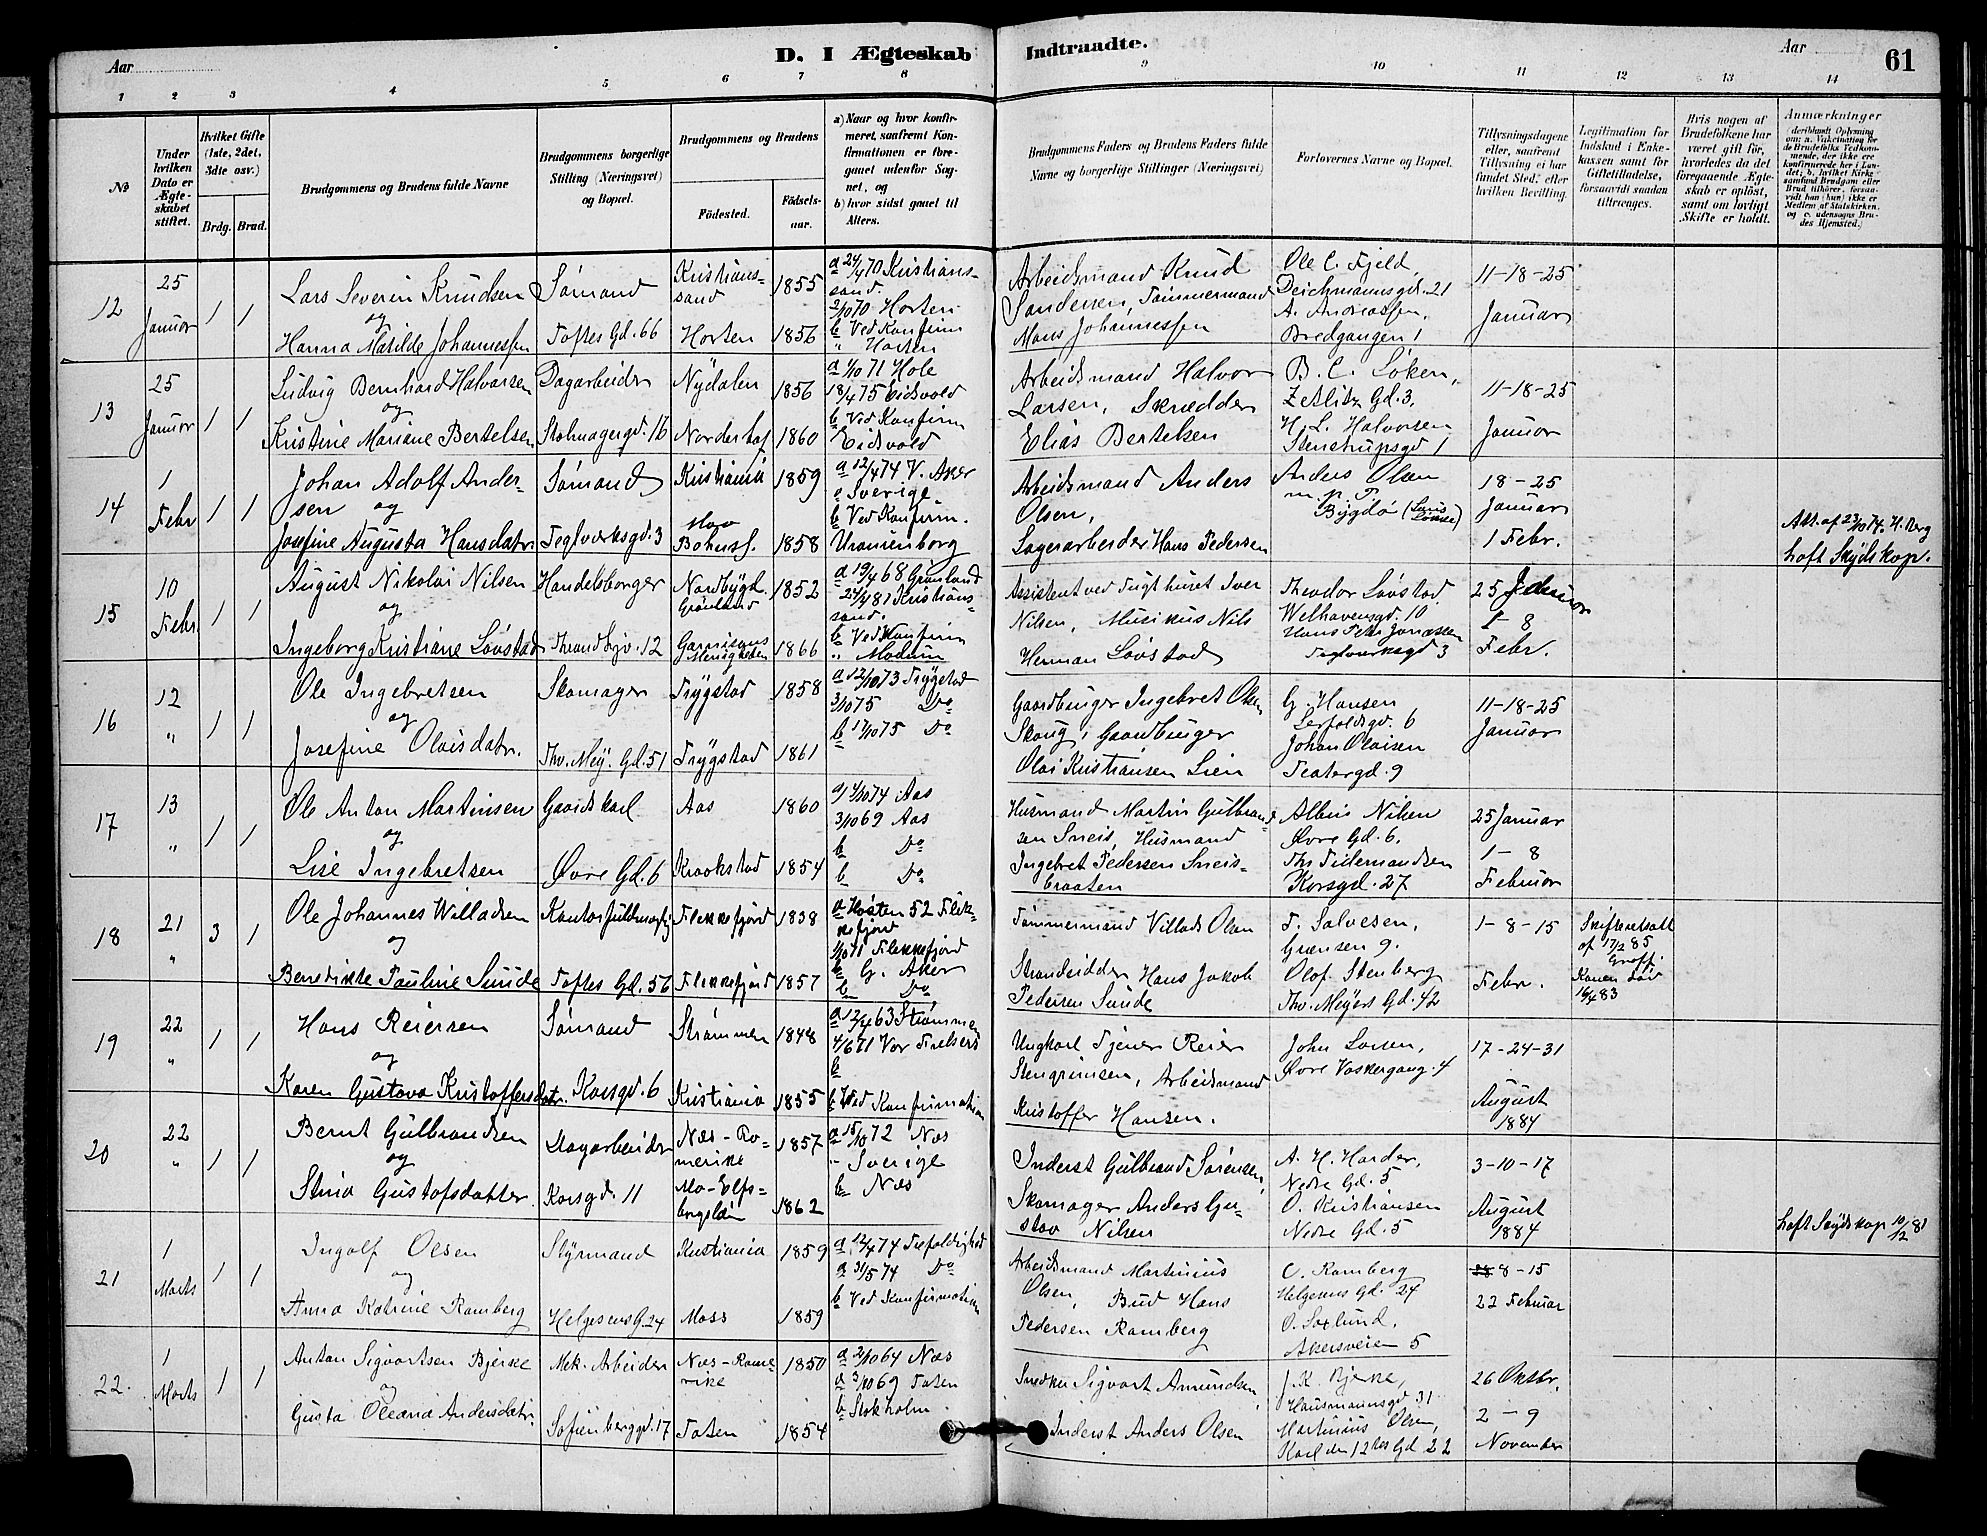 Aar
D. I Ægteskab
Indtraadte.
Aar
61
1 2 3 4 5 6 7 8 9 10 11 12 13 14
No
Under hvilken Dato er Ægteskabet stiftet.
Hvilket Gifte (1ste, 2det, 3die osv.)
Brdg. Brud.
Brudgommens og Brudens fulde Navne
Brudgommens borgerlige Stilling (Næringsvei) og Bopæl.
Brudgommens og Brudens
Fødested.
Fødselsaar.
a) Naar og hvor konfirmeret, saafremt Konfirmationen er foregaaet udenfor Sognet, og
b) hvor sidst gaaet til Alters.
Brudgommens Faders og Brudens Faders fulde Navne og borgerlige Stillinger (Næringsvei)
Forlovernes Navne og Bopæl.
Tillysningsdagene eller, saafremt Tillysning ei har fundet Sted, efter hvilken Bevilling.
Legitimation for Indskud i Enkekassen samt for Giftetilladelse, forsaavidt saadan tiltrænges.
Hvis nogen af Brudefolkene har været gift før, hvorledes da det foregaaende Ægteskab er opløst, samt om lovligt Skifte er holdt.
Anmærkninger
(deriblandt Oplysning om: a. Vakcination for de Brudefolks Vedkommende, der ikke ere konfirmerede her i Landet; b. hvilket Kirkesamfund Brudgom eller Brud tilhører, forsaavidt han (hun) ikke er Medlem af Statskirken, og c. udensogns Brudes Hjemsted.)
12
25 Januar
1 1
Lars Severin Knudsen
og
Hanna Matilde Johannessen
Sømand
Toftes Gd. 66
Kristianssand
Horten
1855
1856
a 24/4 70 Kristianssand
2/10 70 Horten
b Ved Konfirm
" Horten
Arbeidsmand Knud
Sandersen, Tømmermand
Mons Johannessen
Ole C. Fjeld,
Deichmannsgd. 21
A. Andreassen,
Bredgangen 1
11-18-25
Januar
13
25 Januar
1 1
Ludvig Bernhard Halvorsen
og
Kristine Mariene Bertelsen
Dagarbeider
Stolmagergd. 16
Nydalen
Norderhof
1856
1860
a 1/10 71 Hole
18/4 75 Eidsvold
b Ved Konfirm
Eidsvold
Arbeidsmand Halvor
Larsen, Skrædder
Elias Bertelsen
B. C. Løken,
Zetlitz Gd. 3,
H. L. Halvorsen
Stenstrupsgd 1
11-18-25
Januar
14
1 Febr
1 1
Johan Adolf Andersen
og
Josefine Augusta Hansdatr
Sømand
Teglverksgd. 3
Kristiania
Bohusl.
1859
1858
a 12/4 74 V. Aker
Sverige
b Ved Konfirm.
Uranienborg
Arbeidsmand Anders
Olsen,
Lagerarbeider Hans Pedersen
Anders Olsen
Bygdø
18-25
Januar
1 Febr.
Att. af 23/10 74. H. Berg
haft Skydskop.
15
10 Febr.
1 1
August Nikolai Nilsen
og
Ingeborg Kristiane Løvstad
Handelsborger
Throndhjv. 12
Nordbygd. Grønland
Garnisons Menigheden
1852
1866
a 19/4 68 Grønland
24/4 81 Kristianssand.
b Ved Konfirm
" Modum
Assistent ved Tugthuset Iver
Nilsen, Musikus Nils
Herman Løvstad
Theodor Løvstad
Welhavensgd. 10
Hans Petr Jonassen
Teglverksgd 3
25 Januar
1-8
Febr.
16
12 "
1 1
Ole Ingebretsen
og
Josefine Olaisdatr.
Skomager
Thv. Mey. Gd. 51
Trygstad
Trygstad
1858
1861
a 12/10 73 Trygstad
3/10 75 Do
b 17/10 75 Do
Gaardbruger Ingebret Olsen
Skaug, Gaardbruger
Olai Kristiansen Lien
G. Hansen
Leirfaldsgd. 6
Johan Olaisen
Teatergd. 9
11-18-25
Januar
17
13 "
1 1
Ole Anton Martinsen
og
Lise Ingebretsen
Gaardskarl
Øvre Gd. 6
Aas
Kraakstad
1860
1854
a 4/10 74 Aas
3/10 69 Aas
b Do
b Do
Husmand Martin Gulbrandsen
Sneis, Husmand
Ingebret Pedersen Sneisbraaten
Albin Nilsen
Øvre Gd. 6.
Ths Tidemandsen
Korsgd. 27
25 Januar
1-8
Februar
18
21 "
3 1
Ole Johannes Willadsen
og
Benedikte Pauline Sunde
Kontorfuldmægtig
Toftes Gd. 56
Flekkefjord
Flekkefjord
1838
1857
a Høsten 52 Flekkefjord
1/10 71 Flekkefjord
b G. Aker
b Do
Tømmermand Villads Olsen
Strandsidder Hans Jakob
Pedersen Sunde
T. Salvesen,
Grænsen 9.
Olof Stenberg
Thv. Meyers Gd. 42
1-8-15
Febr.
Skifteretsatt
af 17/2 85
Konen død
16/4 83
19
22 "
1 1
Hans Reiersen
og
Karen Gustava Kristoffersdatr.
Sømand
Korsgd. 6
Strømmen
Kristiania
1848
1855
a 12/4 63 Strømmen
4/6 71 Vor Frelsers
b
b Ved Konfirmation
Ungkarl Tjener Reier
Stengrimsen, Arbeidsmand
Kristoffer Hansen.
John Larsen,
Øvre Vaskergang. 4
17-24-31
August
1884
20
22 "
1 1
Bernt Gulbrandsen
og
Stina Gustofsdatter
Dagarbeider
Korsgd. 11
Næs-Romerike
Mo-Elfsborgslän
1857
1862
a 15/10 72 Næs
- Sverige
b Næs
Inderst Gulbrand Sørensen,
Skomager Anders Gustav
Nilsen
A. H. Harder,
Nedre Gd. 5
O. Kristiansen
Nedre Gd. 5
3-10-17
August
1884
haft Skydskop 10/12 81
21
1 Marts
1 1
Ingolf Olsen
og
Anna Katrine Ramberg
Styrmand
Helgesens G. 24
Kristiania
Moss
1859
1859
a 12/4 74 Trefoldighed
a 31/5 74 Do
b Ved Konfirmation
Arbeidsmand Martinius
Olsen, Bud Hans
Pedersen Ramberg
C. Ramberg
Helgesens Gd. 24
O. Soxlund,
Akersveien 5
8-15
22 Februar
22.
1 Marts
1 1
Anton Sigvartsen Bjerke
og
Gusta Oleana Andersdatr.
Mek. Arbeider
Sofienberggd. 17
Næs-Romerike
Toten
1850
1854
a 2/10 64 Næs
a 3/10 69 Toten
b Stokholm
Snedker Sigvart Amundsen,
Inderst Anders Olsen
J. K. Bjerke,
Hausmannsgd 31
Martinius Olsen,
Karl den 12tes Gd 22
26 Oktbr.
2-9
November